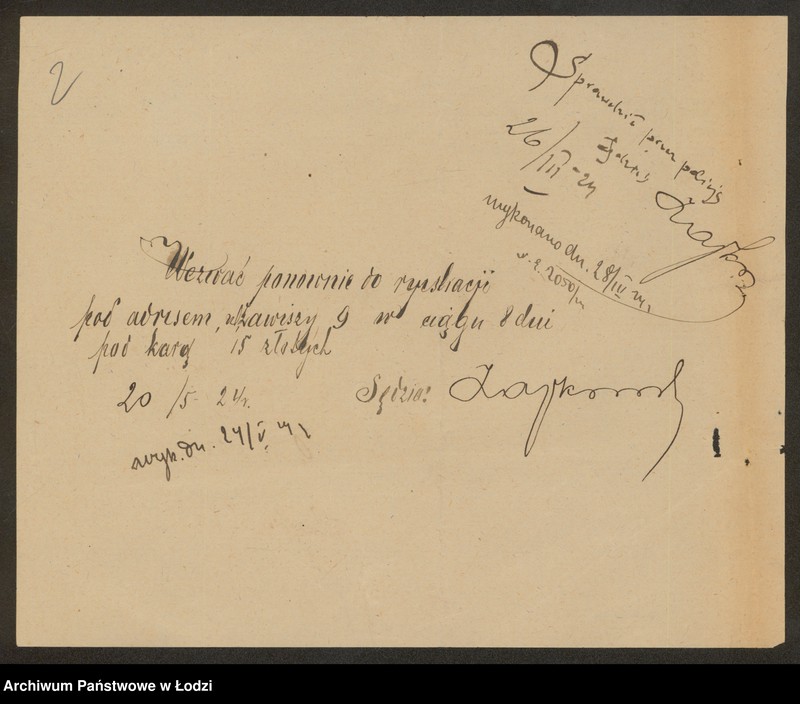 2
Sprawdzić przez policję
26/III-24 Sędzia
Zajkow
wykonano dn. 28/IV 24 r.
2050/24
Wezwać ponownie do rejestracji
pod adresem, ul. Zawiszy 9 w ciągu 8 dni
pod karą 15 złotych
20/5 24 r. Sędzia:
wyk. dn. 24/V 24 r.
Archiwum Państwowe w Łodzi